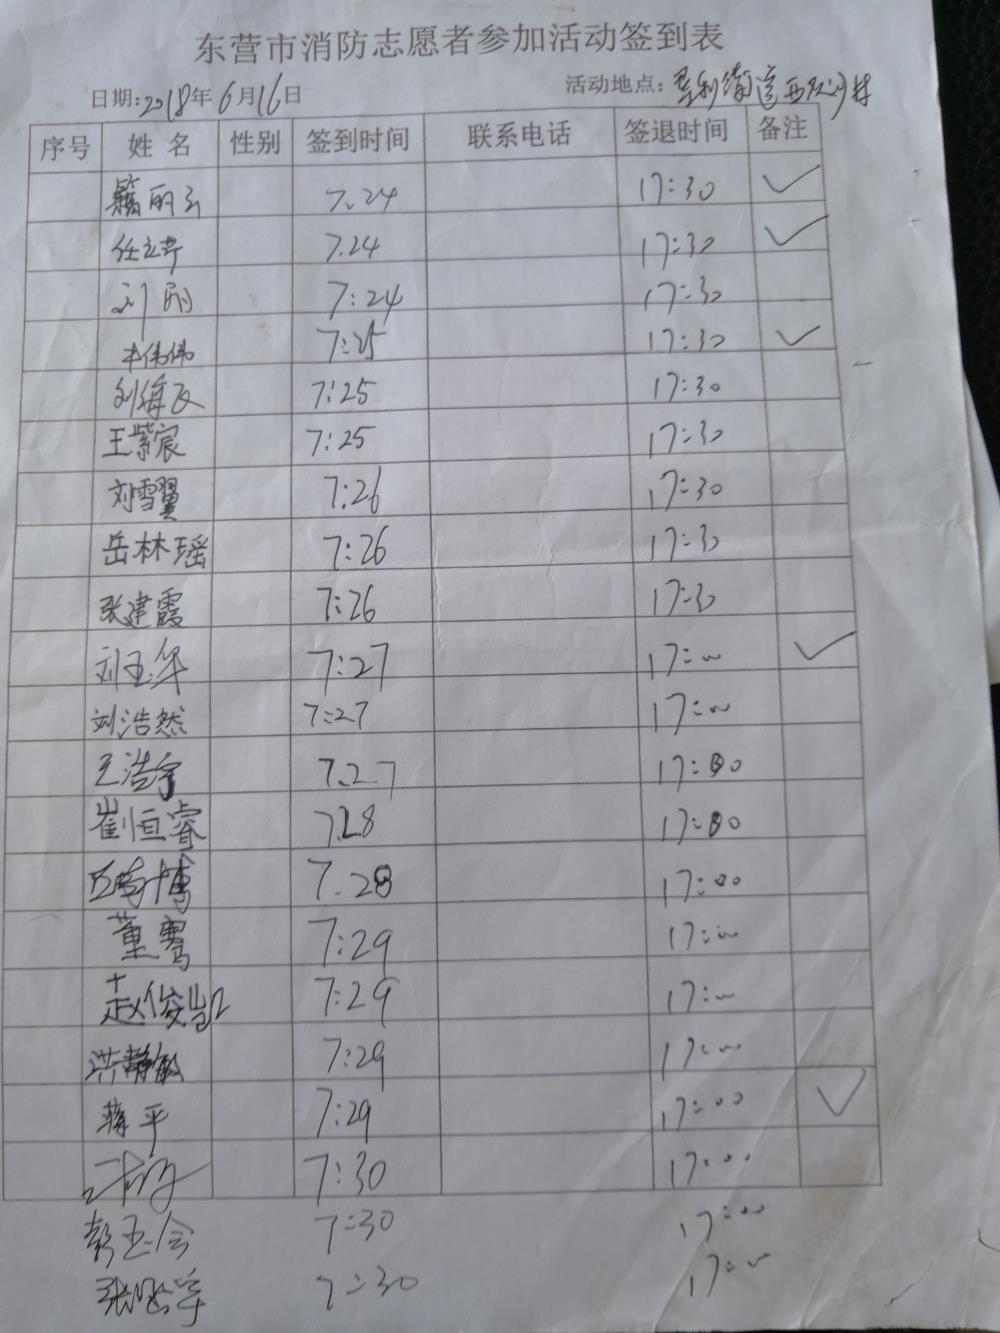 东营市消防志愿者参加活动签到表
日期:2018年6月16日 活动地点:
序号 姓名 性别 签到时间 联系电话 签退时间 备注
籍丽云 7.24 17:30 ✓
任立芹 7.24 17:30 ✓
刘丽 7:24 17:30
伟伟 7:25 17:30 ✓
刘 7:25 17:30
王紫宸 7:25 17:30
刘雪翼 7:26 17:30
岳林瑶 7:26 17:30
张建霞 7:26 17:30
刘玉华 7:27 17:00 ✓
刘浩然 7:27 17:00
王浩宇 7.27 17:00
崔恒睿 7.28 17:00
博 7.28 17:00
董骞 7:29 17:00
赵俊凯 7:29 17:00
洪静敏 7:29 17:00
蒋平 7:29 17:00 ✓
7:30 17:00
彭玉会 7:30 17:00
张 7:30 17:00